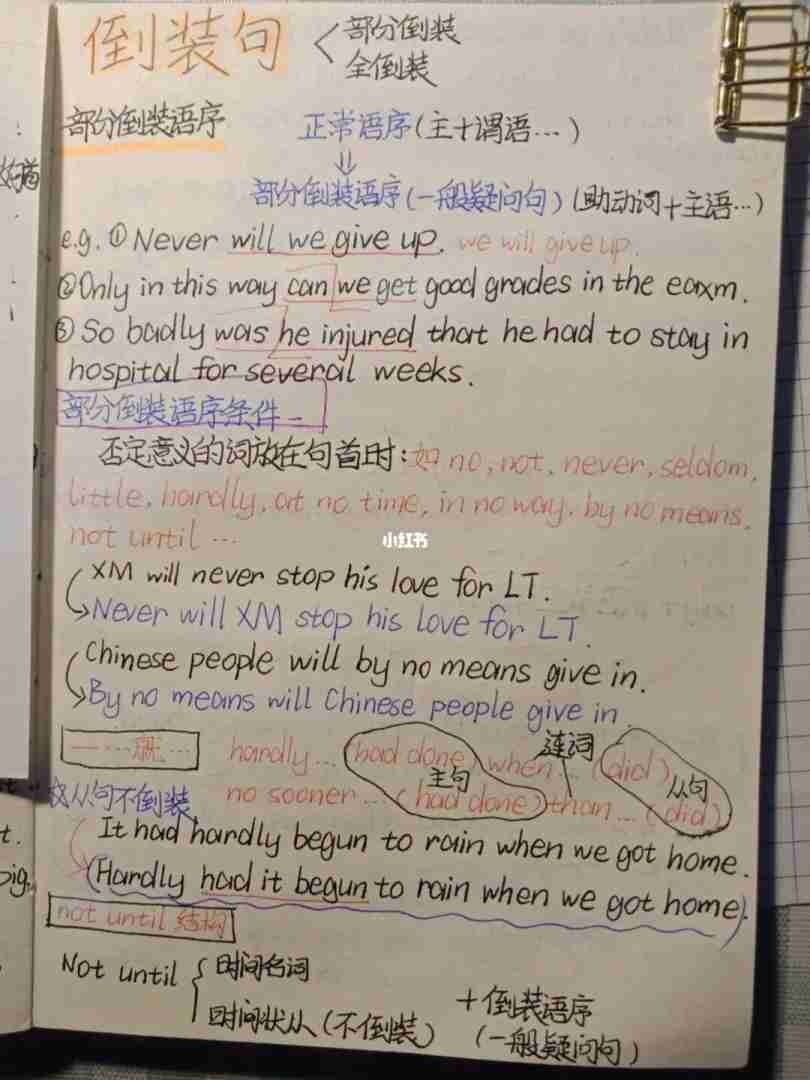 倒装句
部分倒装
全倒装
部分倒装语序 正常语序(主+谓语…)
⇓
部分倒装语序(一般疑问句)(助动词+主语…)
e.g. ①Never will we give up. we will give up.
②Only in this way can we get good grades in the eaxm.
③So badly was he injured that he had to stay in
hospital for several weeks.
部分倒装语序条件一
否定意义的词放在句首时:如no, not, never, seldom,
little, hardly, at no time, in no way, by no means,
not until …
小红书
XM will never stop his love for LT.
→Never will XM stop his love for LT.
Chinese people will by no means give in.
→By no means will Chinese people give in.
一…就… hardly… (had done) when… (did)
连词
主句 从句
从句不倒装 no sooner… (had done) than… (did)
It had hardly begun to rain when we got home.
(Hardly had it begun to rain when we got home).
not until 结构
Not until
时间名词
时间状从(不倒装)
+倒装语序
(一般疑问句)